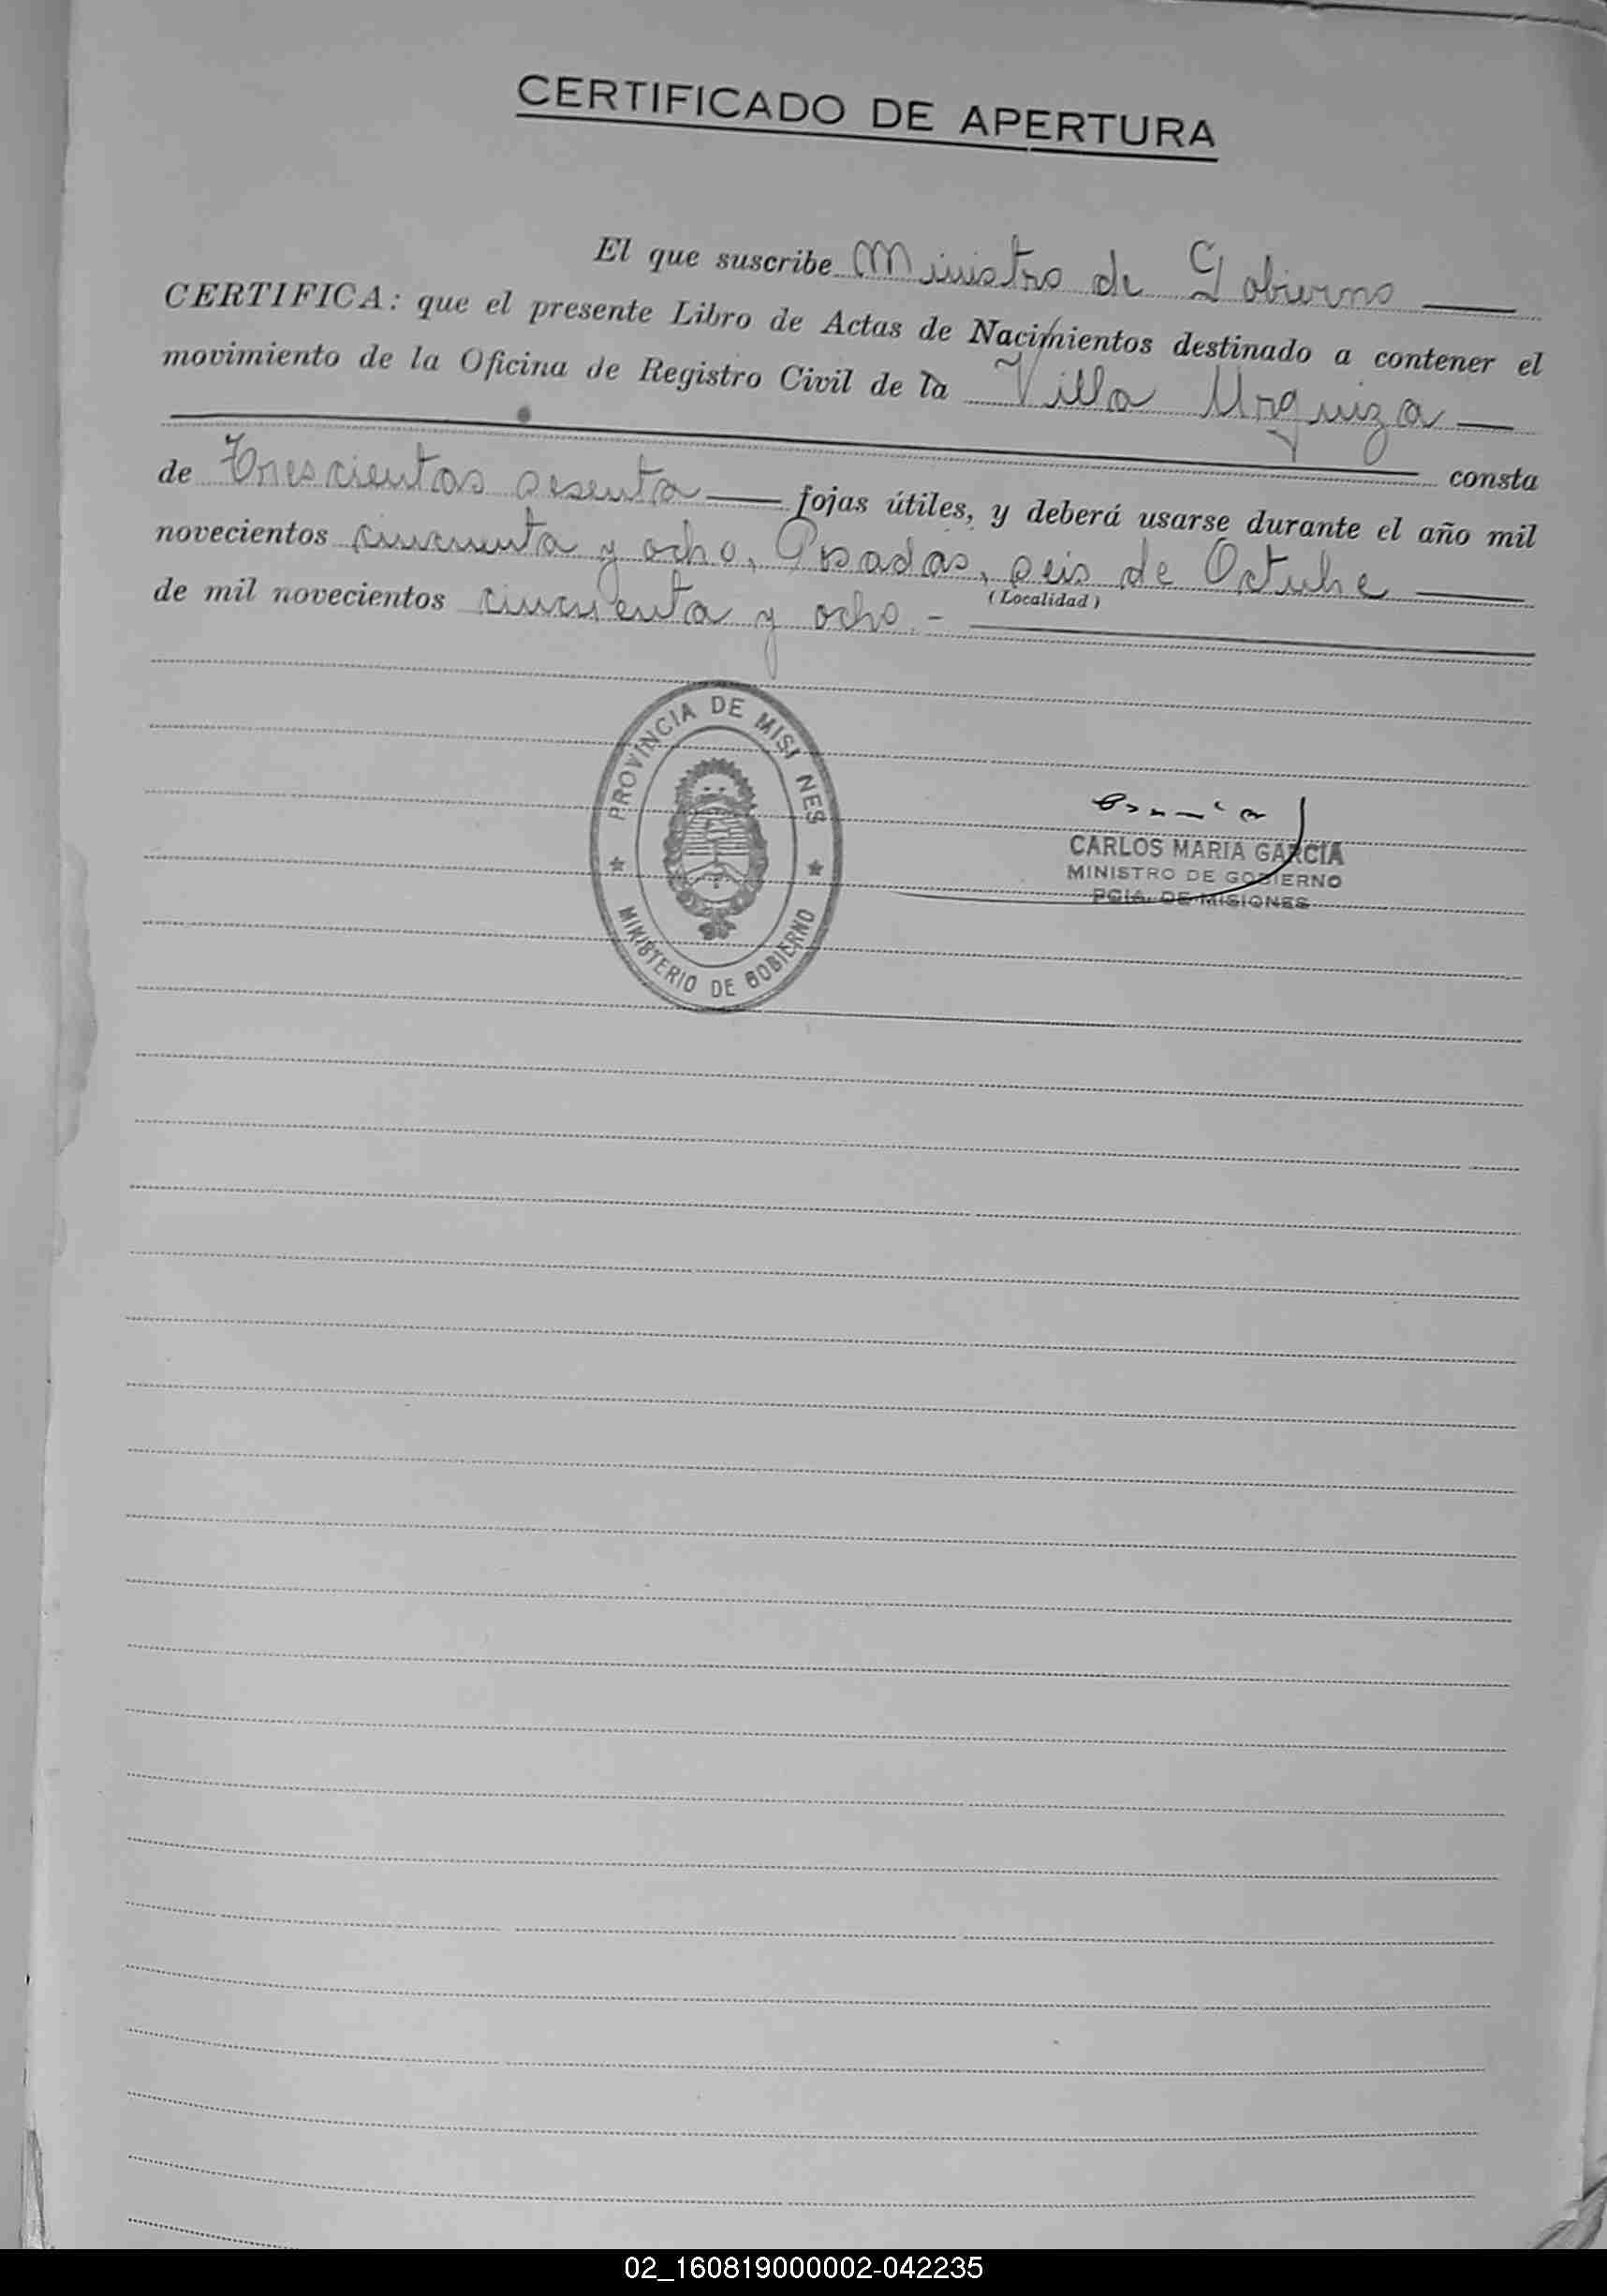 CERTIFICADO DE APERTURA
El que suscribe Ministro de Gobierno
CERTIFICA: que el presente Libro de Actas de Nacimientos destinado a contener el
movimiento de la Oficina de Registro Civil de la Villa Urquiza
consta
de Trescientas sesenta fojas útiles, y deberá usarse durante el año mil
novecientos cincuenta y ocho, Posadas, seis de Octubre
(Localidad)
de mil novecientos cincuenta y ocho.-
PROVINCIA DE MISI NES
MINISTERIO DE GOBIERNO
CARLOS MARIA GARCIA
MINISTRO DE GOBIERNO
PCIA. DE MISIONES
02_160819000002-042235